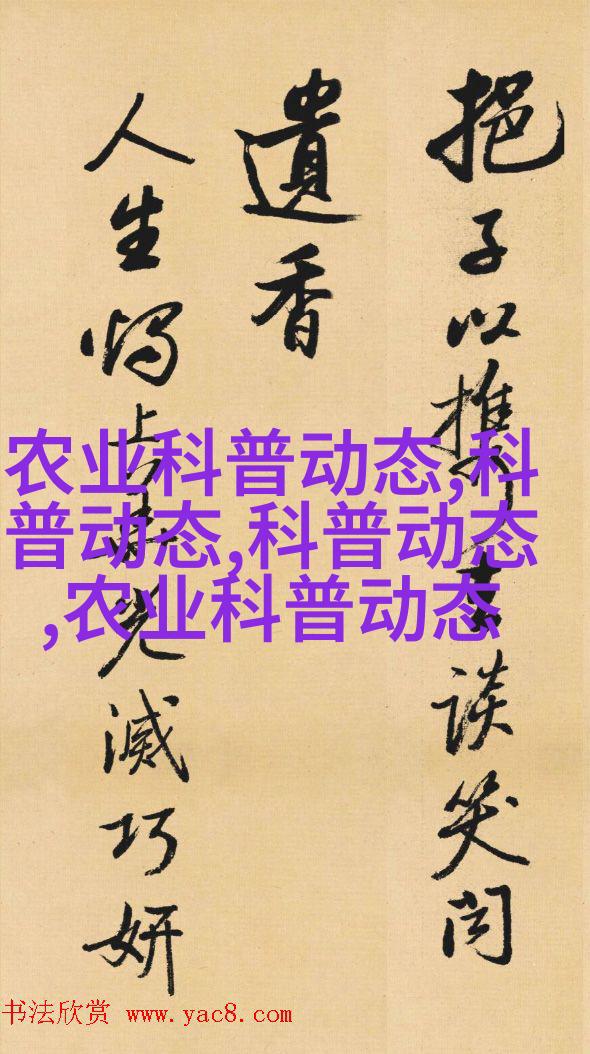 挹子以談笑聞
遺香
人生燭上華光滅巧妍
农业科普动态,科
普动态,科普动态
,农业科普动态
书法欣赏 www.yac8.com